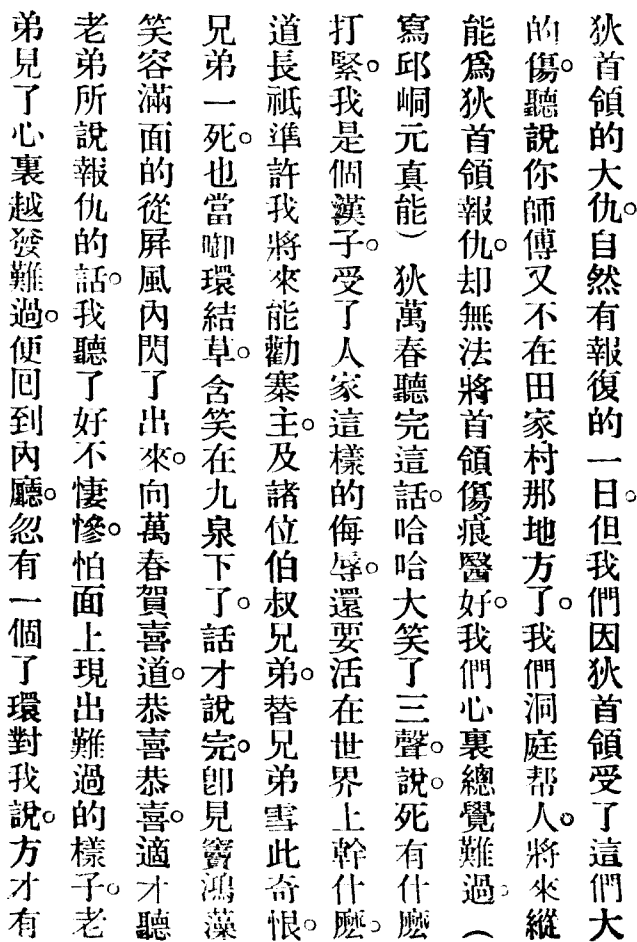 狄首領的大仇。自然有報復的一日。但我們因狄首領受了這們大
的傷。聽說你師傅又不在田家村那地方了。我們洞庭帮人。將來縱
能爲狄首領報仇。却無法將首領傷痕醫好。我們心裏總覺難過。（
寫邱峒元真能）狄萬春聽完這話。哈哈大笑了三聲。說。死有什麽
打緊。我是個漢子。受了人家這樣的侮辱。還要活在世界上幹什麽。
道長祇準許我將來能勸寨主。及諸位伯叔兄弟。替兄弟雪此奇恨。
兄弟一死。也當啣環結草。含笑在九泉下了。話才說完。卽見竇鴻藻
笑容滿面的從屏風內閃了出來。向萬春賀喜道。恭喜恭喜。適才聽
老弟所說報仇的話。我聽了好不悽慘。怕面上現出難過的樣子。老
弟見了心裏越發難過。便回到內廳。忽有一個了環對我說。方才有